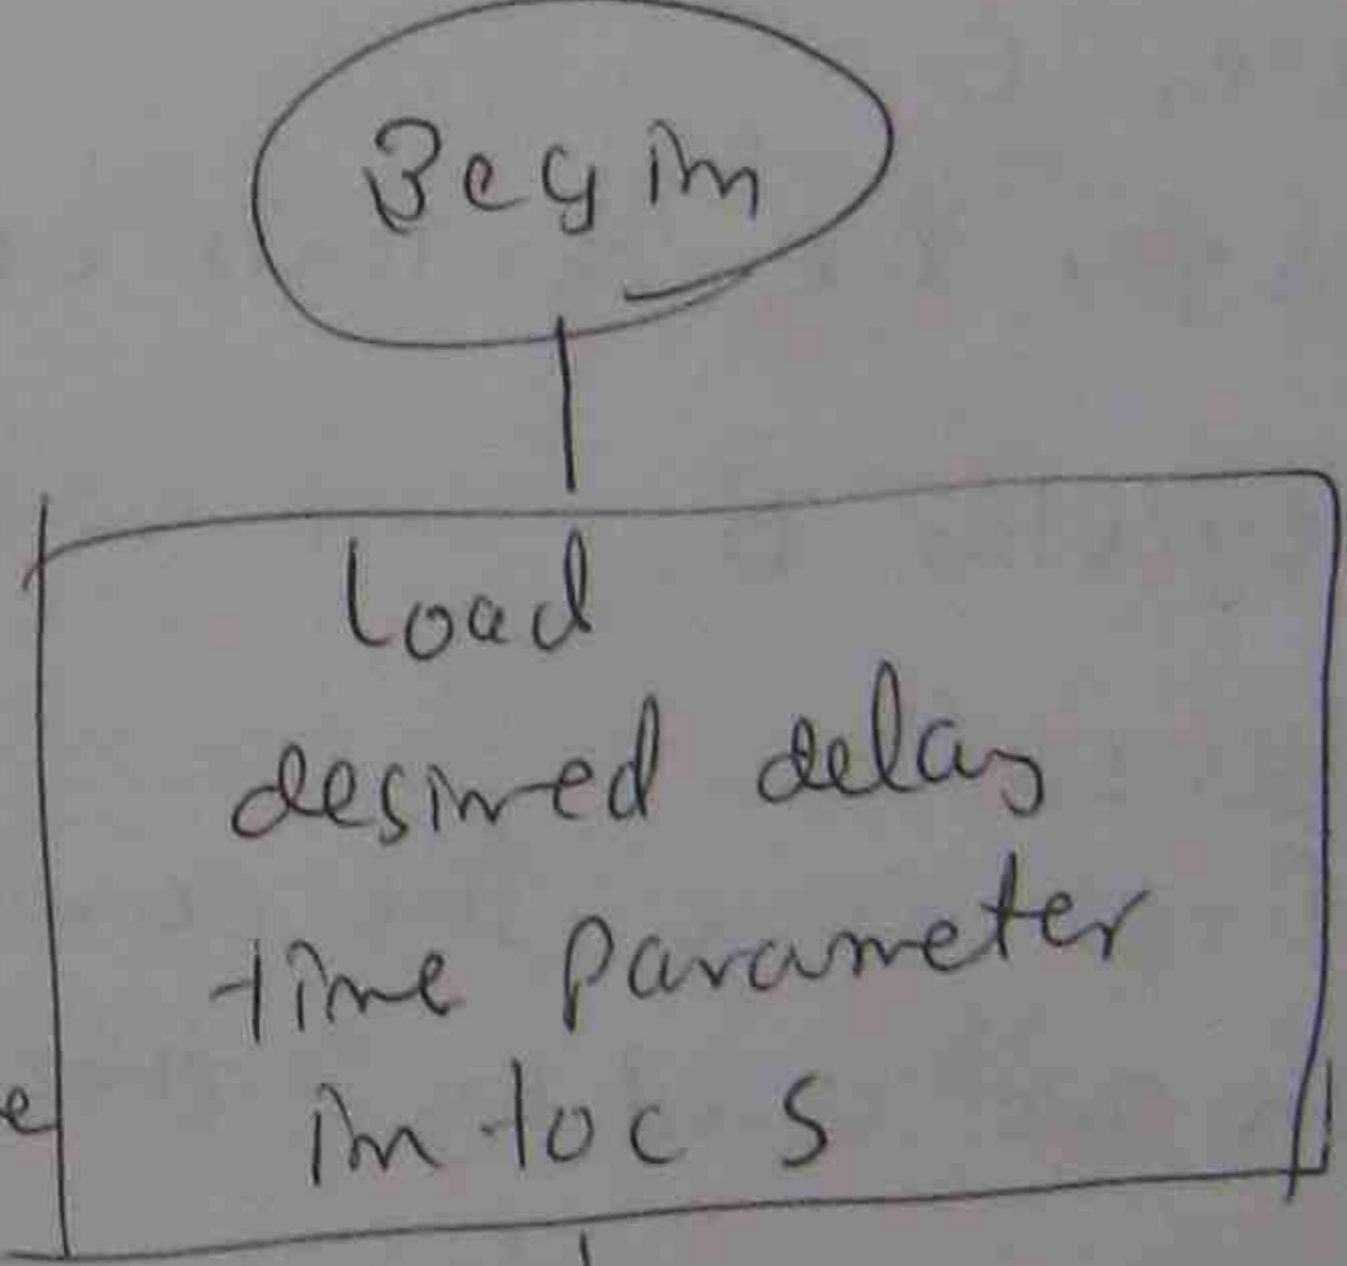 Begin
Load
desired delay
time parameter
in toc S
e